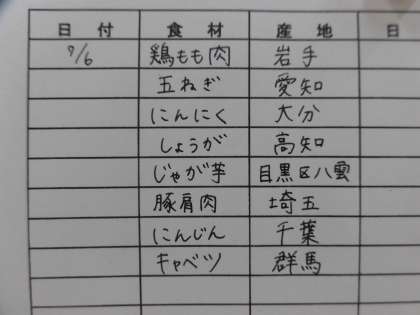 日 付 食 材 産 地 日
9/6 鶏もも肉 岩手
五ねぎ 愛知
にんにく 大分
しょうが 高知
じゃが芋 目黒区八雲
豚肩肉 埼玉
にんじん 千葉
キャベツ 群馬